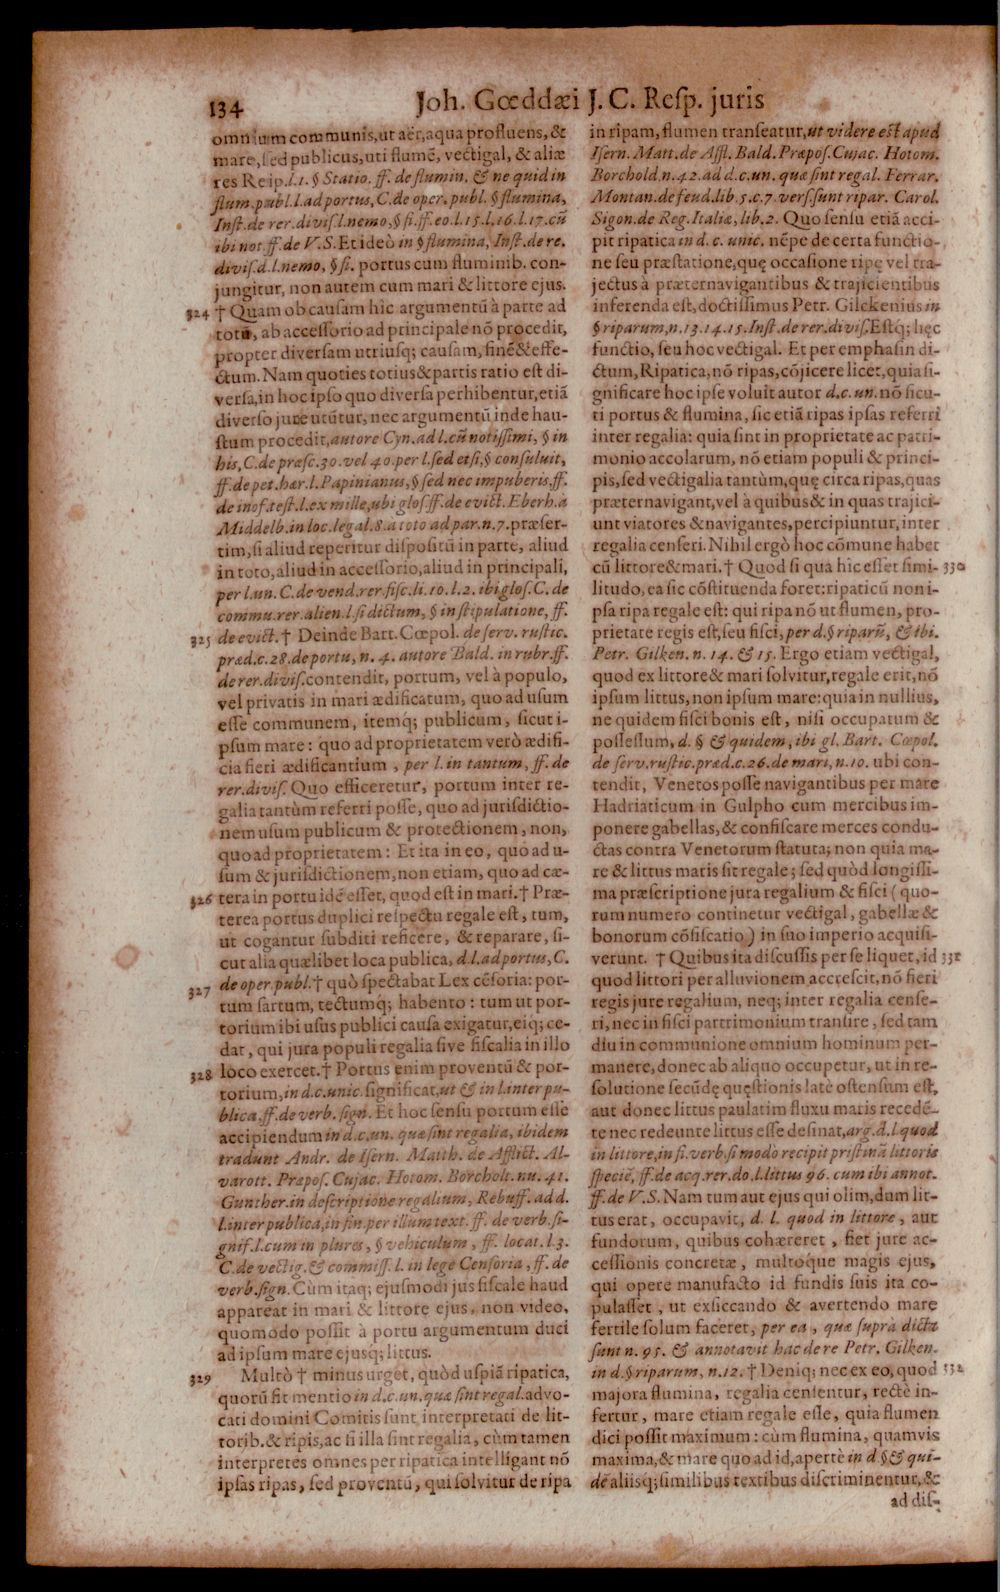 134
Joh. Gœddæi J. C. Resp. juris
omnium communis, ut aër, aqua profluens, &
mare, sed publicus, uti flumẽ, vectigal, & aliæ
res Reip. l. 1. § Statio. ff. de flumin. & ne quid in
flum. publ. l. ad portus, C. de oper. publ. § flumina,
Inst. de rer. divis. l. nemo, § si. ff. eo. l. 15. l. 16. l. 17. cũ
ibi not. ff. de V. S. Et ideò in § flumina, Inst. de re.
divis. d. l. nemo, § si. portus cum fluminib. con-
jungitur, non autem cum mari & littore ejus.
324 † Quam ob causam hîc argumentũ à parte ad
totũ, ab accessorio ad principale nõ procedit,
propter diversam utriusq; causam, finẽ & effe-
ctum. Nam quoties totius & partis ratio est di-
versa, in hoc ipso quo diversa perhibentur, etiã
diverso jure utũtur, nec argumentũ inde hau-
stum procedit, autore Cyn. ad l. cũ notissimi, § in
his, C. de præsc. 30. vel 40. per l. sed etsi, § consuluit,
ff. de pet. hær. l. Papinianus, § sed nec impuberis, ff.
de inof. test. l. ex mille, ubi glos. ff. de evict. Eberh. à
Middelb. in loc. legal. 8. à toto ad par. n. 7. præser-
tim, si aliud reperitur dispositũ in parte, aliud
in toto, aliud in accessorio, aliud in principali,
per l. un. C. de vend. rer. fisc. li. 10. l. 2. ibi glos. C. de
commu. rer. alien. l. si dictum, § in stipulatione, ff.
325 de evict. † Deinde Bart. Cœpol. de serv. rustic.
præd. c. 28. de portu, n. 4. autore Bald. in rubr. ff.
de rer. divis. contendit, portum, vel à populo,
vel privatis in mari ædificatum, quo ad usum
esse communem, itemq; publicum, sicut i-
psum mare: quo ad proprietatem verò ædifi-
cia fieri ædificantium, per l. in tantum, ff. de
rer. divis. Quo efficeretur, portum inter re-
galia tantùm referri posse, quo ad jurisdictio-
nem usum publicum & protectionem, non,
quo ad proprietatem: Et ita in eo, quo ad u-
sum & jurisdictionem, non etiam, quo ad cæ-
326 tera in portu idẽ esset, quod est in mari. † Præ-
terea portus duplici respectu regale est, tum,
ut cogantur subditi reficere, & reparare, si-
cut alia quælibet loca publica, d. l. ad portus, C.
327 de oper. publ. † quò spectabat Lex cẽsoria: por-
tum sartum, tectumq; habento: tum ut por-
torium ibi usus publici causa exigatur, eiq; ce-
dat, qui jura populi regalia sive fiscalia in illo
328 loco exercet. † Portus enim proventũ & por-
torium, in d. c. unic. significat, ut & in l. inter pu-
blica, ff. de verb. sign. Et hoc sensu portum esse
accipiendum in d. c. un. quæ sint regalia, ibidem
tradunt Andr. de Isern. Matth. de Afflict. Al-
varott. Præpos. Cujac. Hotom. Borcholt. nu. 41.
Gunther. in descriptione regalium, Rebuff. ad d.
l. inter publica, in fin. per illum text. ff. de verb. si-
gnif. l. cum in plures, § vehiculum, ff. locat. l. 3.
C. de vectig. & commiss. l. in lege Censoria, ff. de
verb. sign. Cùm itaq; ejusmodi jus fiscale haud
appareat in mari & littore ejus, non video,
quomodo possit à portu argumentum duci
ad ipsum mare ejusq; littus.
329 Multò † minus urget, quòd uspiã ripatica,
quorũ fit mentio in d. c. un. quæ sint regal. advo-
cati domini Comitis sunt interpretati de lit-
torib. & ripis, ac si illa sint regalia, cùm tamen
interpretes omnes per ripatica intelligant nõ
ipsas ripas, sed proventũ, qui solvitur de ripa
in ripam, flumen transeatur, ut videre est apud
Isern. Matt. de Affl. Bald. Præpos. Cujac. Hotom.
Borchold. n. 42. ad d. c. un. quæ sint regal. Ferrar.
Montan. de feud. lib. 5. c. 7. vers. sunt ripar. Carol.
Sigon. de Reg. Italiæ, lib. 2. Quo sensu etiã acci-
pit ripatica in d. c. unic. nẽpe de certa functio-
ne seu præstatione, quę occasione ripę vel tra-
jectus à præternavigantibus & trajicientibus
inferenda est, doctissimus Petr. Gilckenius in
§ riparum, n. 13. 14. 15. Inst. de rer. divis. Estq; hęc
functio, seu hoc vectigal. Et per emphasin di-
ctum, Ripatica, nõ ripas, cõjicere licet, quia si-
gnificare hoc ipse voluit autor d. c. un. nõ sicu-
ti portus & flumina, sic etiã ripas ipsas referri
inter regalia: quia sint in proprietate ac patri-
monio accolarum, nõ etiam populi & princi-
pis, sed vectigalia tantùm, quę circa ripas, quas
præternavigant, vel à quibus & in quas trajici-
unt viatores & navigantes, percipiuntur, inter
regalia censeri. Nihil ergò hoc cõmune habet
cũ littore & mari. † Quod si qua hîc esset simi- 330
litudo, ea sic cõstituenda foret: ripaticũ non i-
psa ripa regale est: qui ripa nõ ut flumen, pro-
prietate regis est, seu fisci, per d. § riparũ, & ibi.
Petr. Gilken. n. 14. & 15. Ergo etiam vectigal,
quod ex littore & mari solvitur, regale erit, nõ
ipsum littus, non ipsum mare: quia in nullius,
ne quidem fisci bonis est, nisi occupatum &
possessum, d. § & quidem, ibi gl. Bart. Cœpol.
de serv. rustic. præd. c. 26. de mari, n. 10. ubi con-
tendit, Venetos posse navigantibus per mare
Hadriaticum in Gulpho cum mercibus im-
ponere gabellas, & confiscare merces condu-
ctas contra Venetorum statuta; non quia ma-
re & littus maris sit regale; sed quòd longissi-
ma præscriptione jura regalium & fisci (quo-
rum numero continetur vectigal, gabellæ &
bonorum cõfiscatio) in suo imperio acquisi-
verunt. † Quibus ita discussis per se liquet, id 331
quod littori per alluvionem accrescit, nõ fieri
regis jure regalium, neq; inter regalia cense-
ri, nec in fisci partrimonium transire, sed tam
diu in communione omnium hominum per-
manere, donec ab aliquo occupetur, ut in re-
solutione secũdę quęstionis latè ostensum est,
aut donec littus paulatim fluxu maris recedẽ-
te nec redeunte littus esse desinat, arg. d. l. quod
in littore, in fi. verb. si modò recipit pristinã littoris
speciẽ, ff. de acq. rer. do. l. littus 96. cum ibi annot.
ff. de V. S. Nam tum aut ejus qui olim, dum lit-
tus erat, occupavit, d. l. quod in littore, aut
fundorum, quibus cohæreret, fiet jure ac-
cessionis concretæ, multóque magis ejus,
qui opere manufacto id fundis suis ita co-
pulasset, ut exsiccando & avertendo mare
fertile solum faceret, per ea, quæ suprà dicta
sunt n. 95. & annotavit hac de re Petr. Gilken.
in d. § riparum, n. 12. † Deniq; nec ex eo, quod 332
majora flumina, regalia censentur, rectè in-
fertur, mare etiam regale esse, quia flumen
dici possit maximum: cùm flumina, quamvis
maxima, & mare quo ad id, apertè in d. § & qui-
dẽ aliisq; similibus textibus discriminentur, &
ad dis-